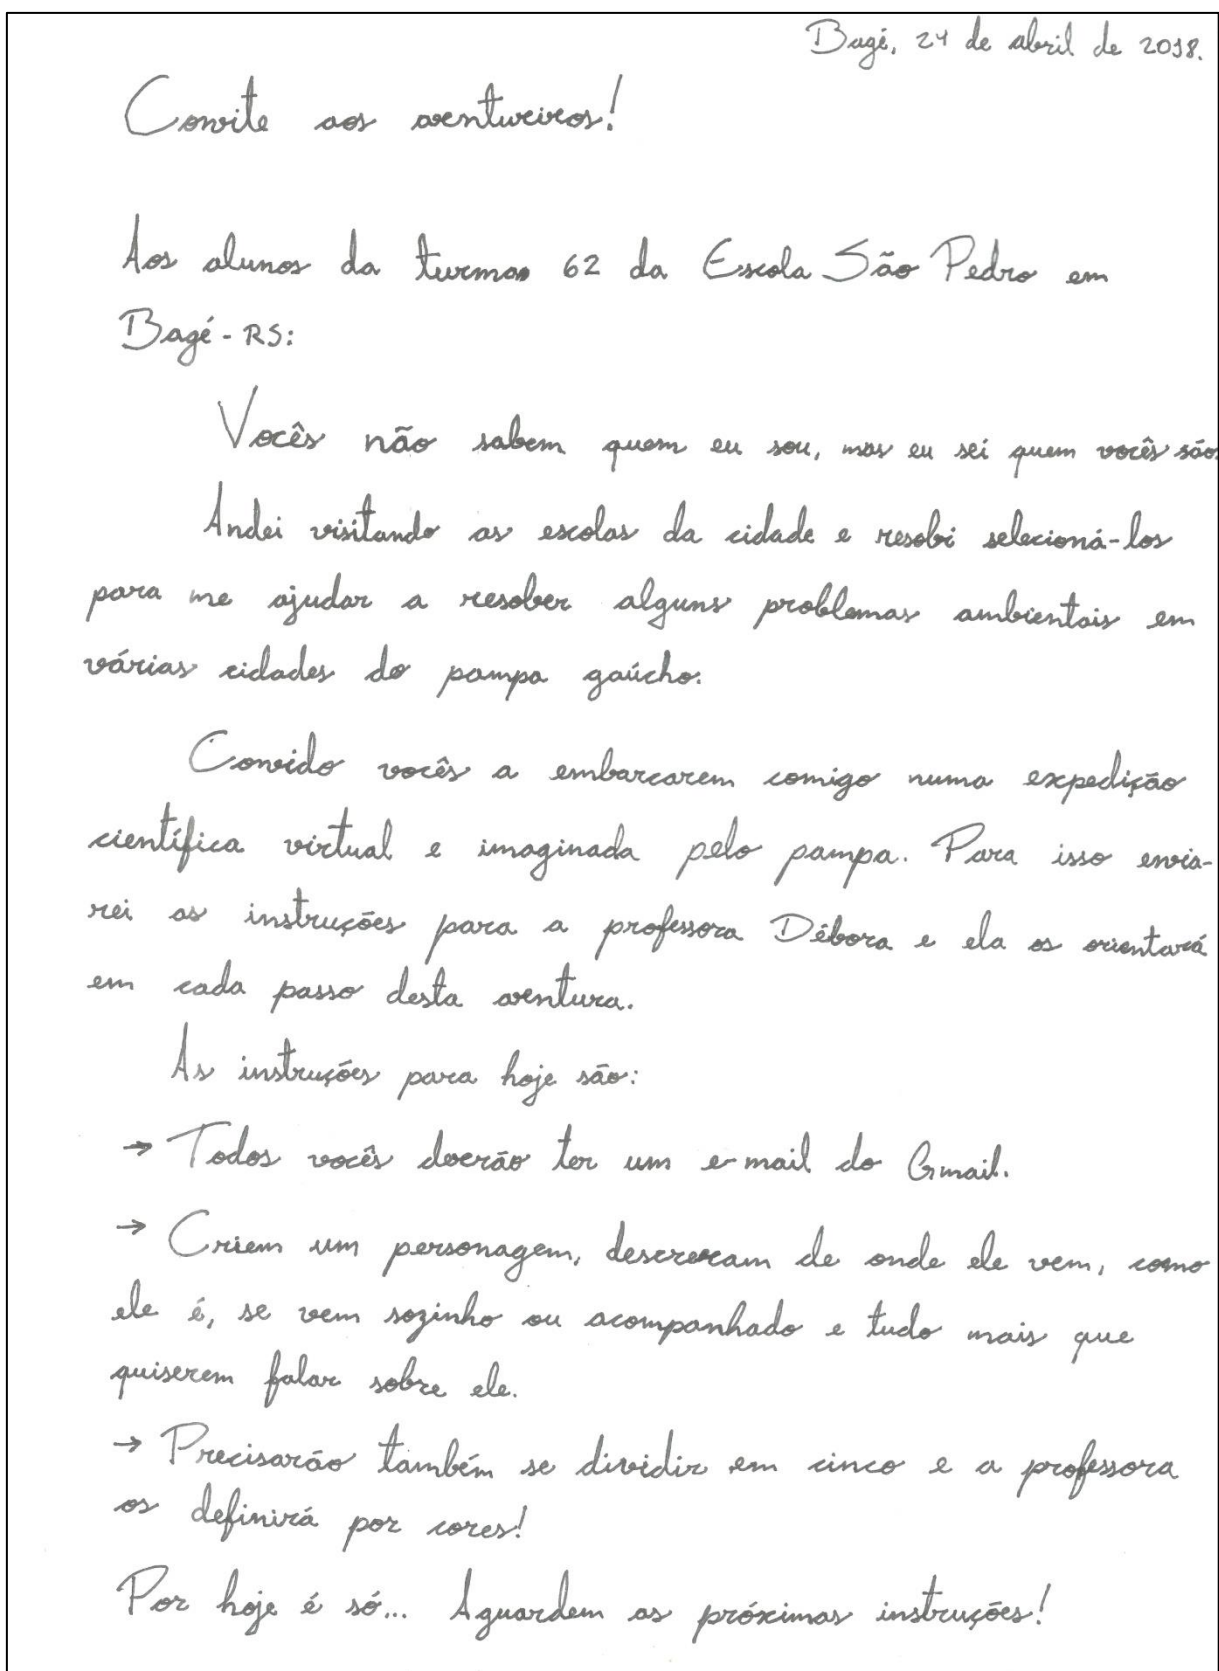 Bagé, 24 de abril de 2018.
Convite aos aventureiros!
Aos alunos da turma 62 da Escola São Pedro em
Bagé - RS:
Vocês não sabem quem eu sou, mas eu sei quem vocês são.
Andei visitando as escolas da cidade e resolvi selecioná-los
para me ajudar a resolver alguns problemas ambientais em
várias cidades do pampa gaúcho.
Convido vocês a embarcarem comigo numa expedição
científica virtual e imaginada pelo pampa. Para isso envia-
rei as instruções para a professora Débora e ela os orientará
em cada passo desta aventura.
As instruções para hoje são:
→ Todos vocês deverão ter um e-mail do Gmail.
→ Criem um personagem, descrevam de onde ele vem, como
ele é, se vem sozinho ou acompanhado e tudo mais que
quiserem falar sobre ele.
→ Precisarão também se dividir em cinco e a professora
os definirá por cores!
Por hoje é só... Aguardem as próximas instruções!